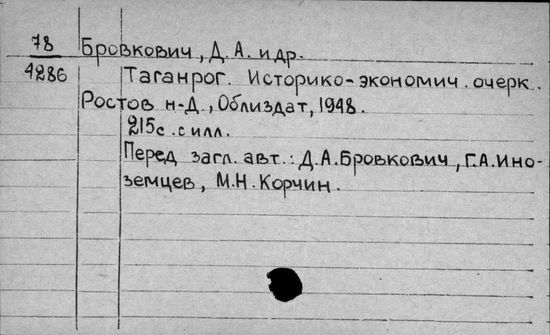 78
Бровкович, Д. А. и др.
4286
Таганрог. Историко-экономич. очерк.
Ростов н-Д., Облиздат, 1948.
215с. с илл.
Перед загл. авт.: Д.А.Бровкович, Г.А.Ино-
земцев, М.Н.Корчин.